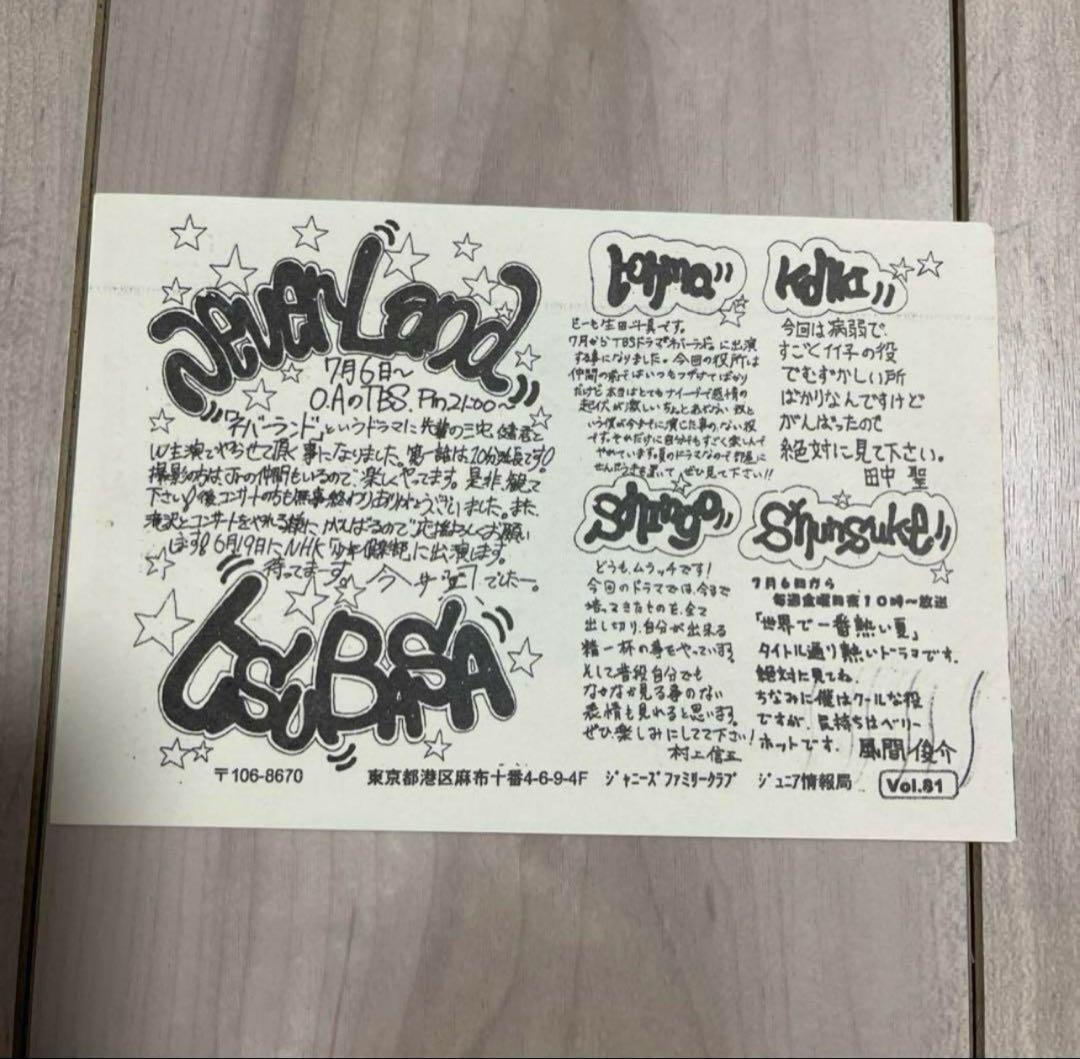 Never Land
7月6日～
O.AのTBS. Pm21:00～
「ネバーランド」というドラマに先輩の三宅健君と
W主演でやらせて頂く事になりました。第一話は20分延長です!
撮影の方はJrの仲間もいるので、楽しくやってます。是非観て
下さい!後コンサートの方も無事終わりありがとうございました。また、
滝沢とコンサートをやれる様に、がんばるので応援よろしくお願い
します!6月19日にNHK「少年倶楽部」に出演します。
待ってまーす。今井翼でしたー。
TSUBASA
Tohma
どーも生田斗真です。
7月からTBSドラマ「ネバーランド」に出演
する事になりました。今回の役所は
仲間の前ではいつもふざけてばかり
だけど本当はとてもナイーブで感情の
起伏が激しい
いう僕が今までに演じた事のない役
です。それだけに自分でもすごく楽しんで
やれています。夏のドラマなので部屋に
せんぷうきを置いて、ぜひ見て下さい!!
Koki
今回は病弱で、
すごくイイ子の役
でむずかしい所
ばかりなんですけど
がんばったので
絶対に見て下さい。
田中 聖
Shingo
どうも、ムラッチです!
今回のドラマでは、今まで
培ってきたものを、全て
出し切り、自分が出来る
精一杯の事をやっています。
そして普段自分でも
なかなか見る事のない
表情も見れると思います。
ぜひ楽しみにしてて下さい!
村上信五
Shunsuke
7月6日から
毎週金曜日夜10時～放送
「世界で一番熱い夏」
タイトル通り熱いドラマです。
絶対に見てね。
ちなみに僕はクールな役
ですが、気持ちはベリー
ホットです。 風間俊介
〒106-8670 東京都港区麻布十番4-6-9-4F ジャニーズファミリークラブ ジュニア情報局 Vol.81